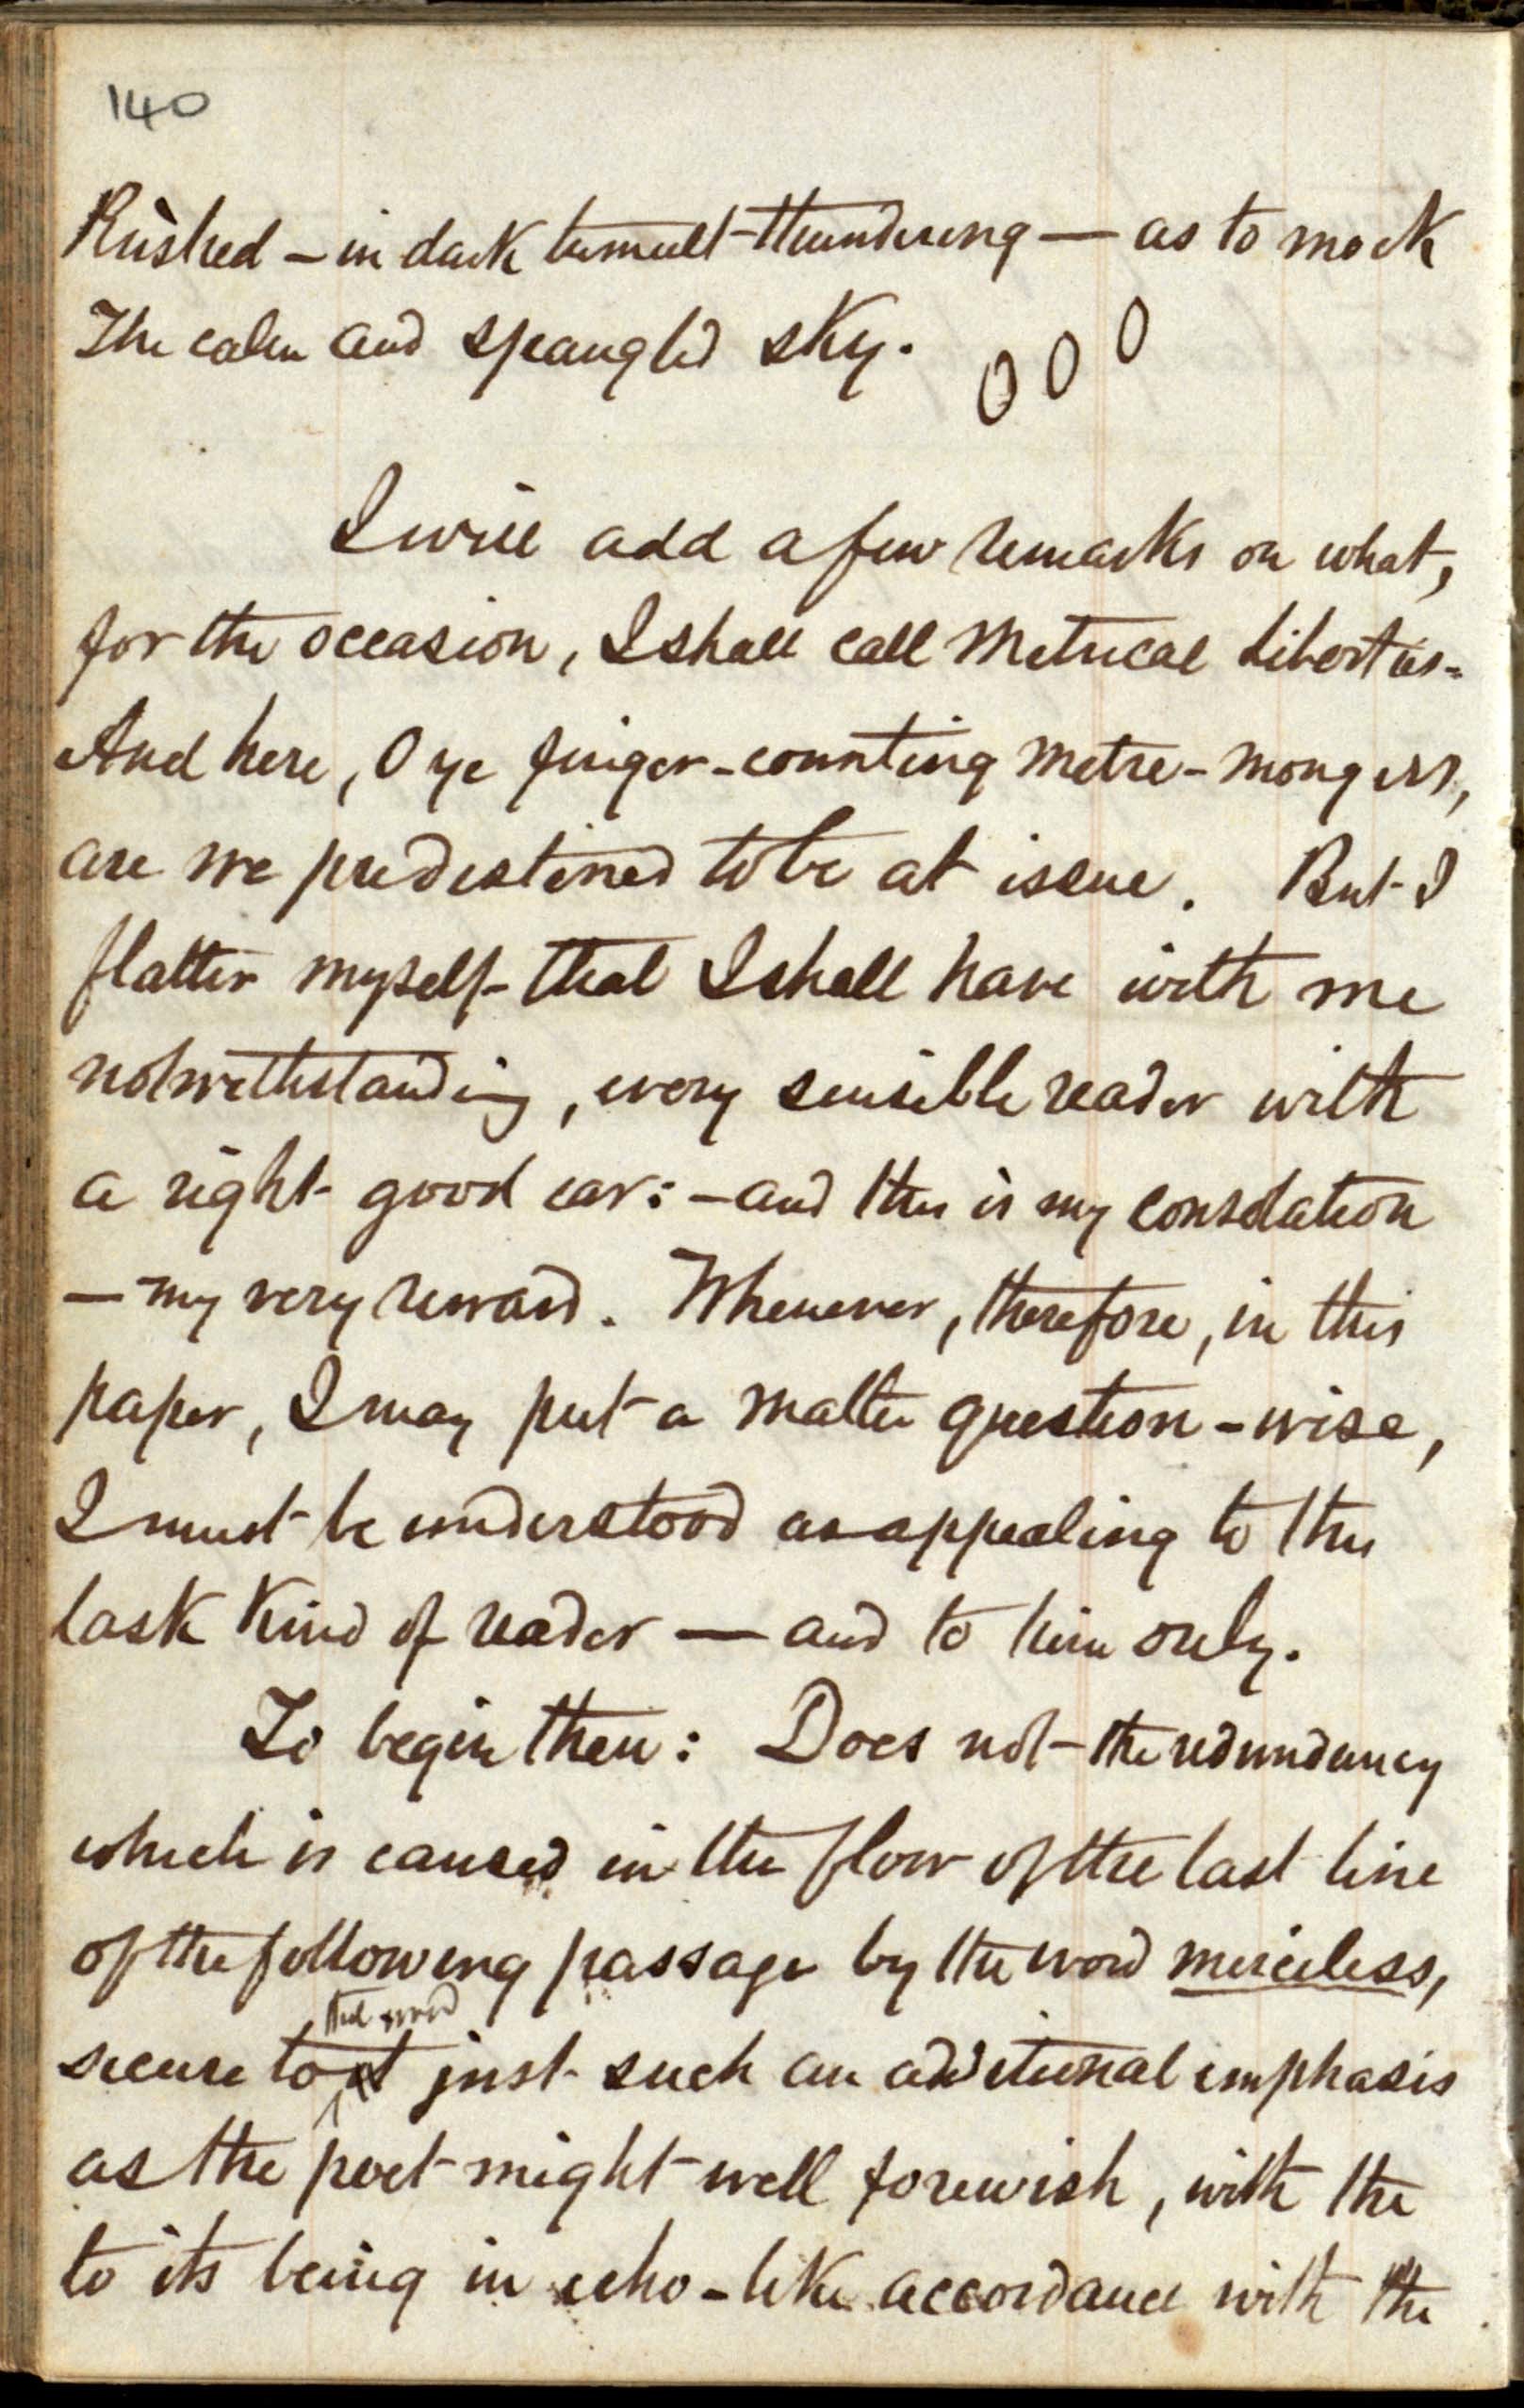 140
Rushed – in dark tumult thundering — as to mock
The calm and spangled sky. 000
I will add a few remarks on what,
for the occasion, I shall call Metrical Liberties.
And here, O ye finger-counting metre-mongers,
are we predestined to be at issue. But I
flatter myself that I shall have with me
notwithstanding, every sensible reader with
a right good ear: – and this is my consolation
– my very reward. Whenever, therefore, in this
paper, I may put a matter question-wise,
I must be understood as appealing to this
last kind of reader — and to him only.
To begin then: Does not the redundancy
which is caused in the flow of the last line
of the following passage by the word merciless,
that word
secure to it just such an additional emphasis
as the poet might well forewish, with the
to its being in echo-like accordance with the